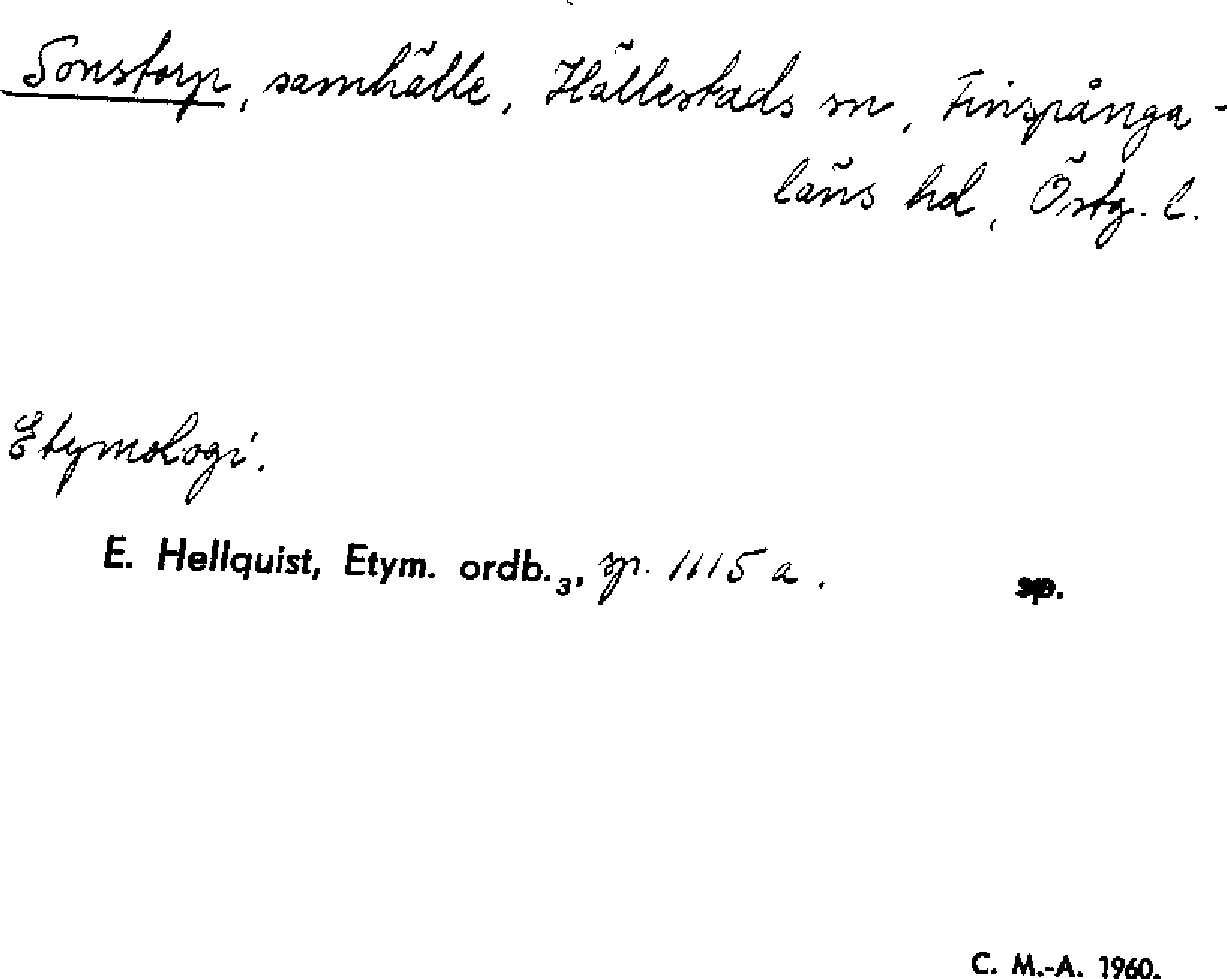 Sonstorp, samhälle, Hällestads sn, Finspånga-
läns hd, Östg. l.
Etymologi.
E. Hellquist, Etym. ordb.₃, sp. 1115 a. sp.
C. M.-A. 1960.